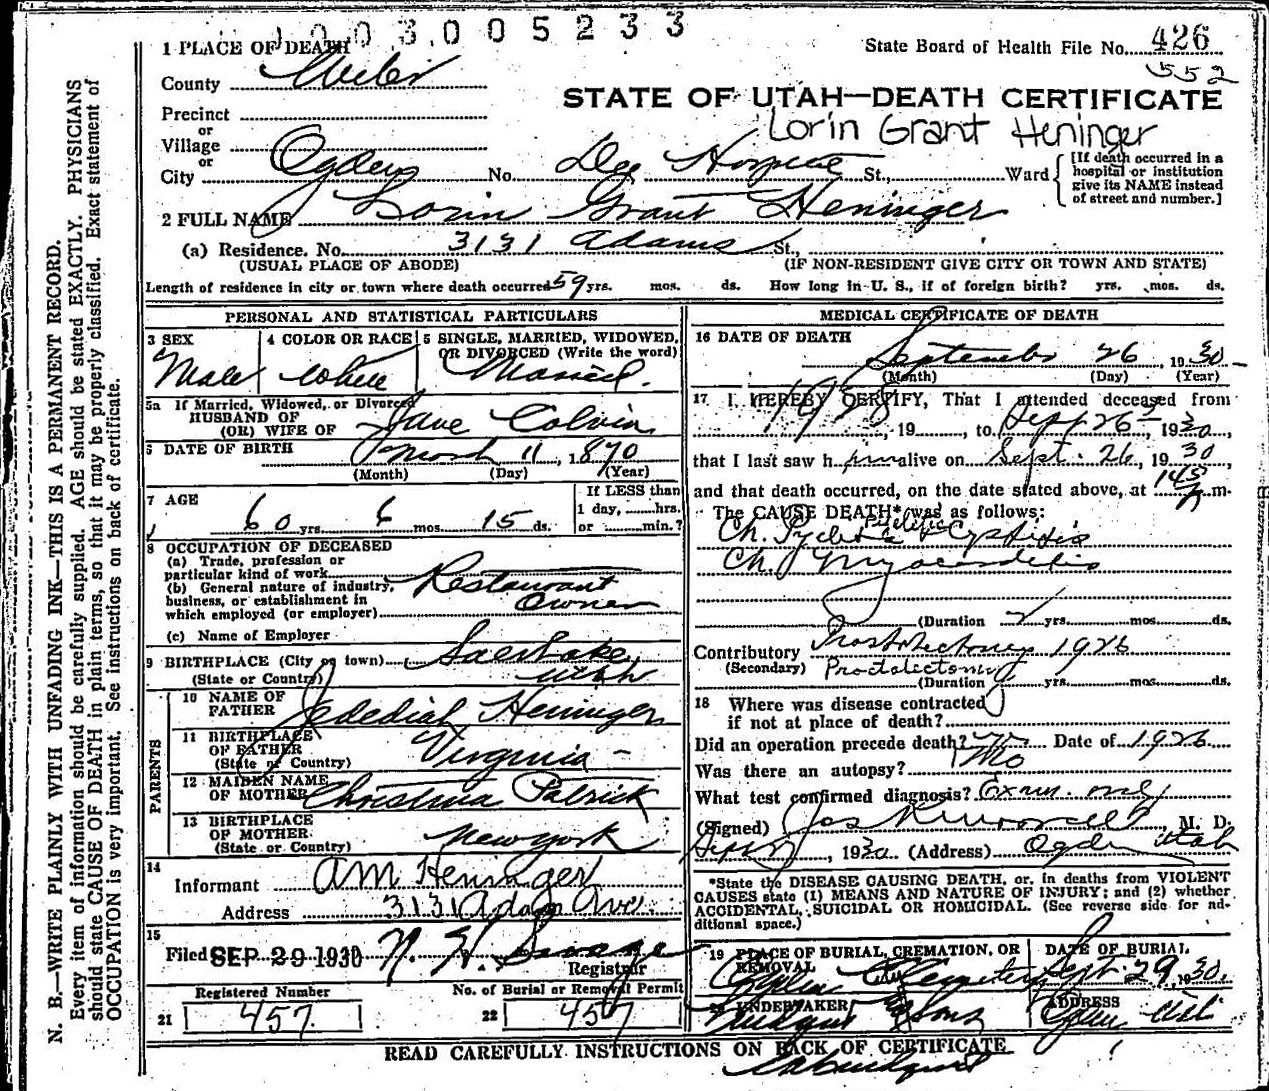 1003005233
1 PLACE OF DEATH
State Board of Health File No. 426
552
County Weber
STATE OF UTAH—DEATH CERTIFICATE
Precinct
or
Lorin Grant Heninger
Village
or
City Ogden No. Dee Hospital St., Ward
[If death occurred in a
hospital or institution
give its NAME instead
of street and number.]
2 FULL NAME Lorin Grant Heninger
(a) Residence. No. 3131 Adams St.,
(USUAL PLACE OF ABODE) (IF NON-RESIDENT GIVE CITY OR TOWN AND STATE)
Length of residence in city or town where death occurred 59 yrs. mos. ds. How long in U. S., if of foreign birth? yrs. mos. ds.
PERSONAL AND STATISTICAL PARTICULARS
3 SEX
Male
4 COLOR OR RACE
White
5 SINGLE, MARRIED, WIDOWED,
OR DIVORCED (Write the word)
Married.
5a If Married, Widowed, or Divorced
HUSBAND OF
(OR) WIFE OF
Jane Colvin
6 DATE OF BIRTH March 11, 1870
(Month) (Day) (Year)
7 AGE
60 yrs. 6 mos. 15 ds.
If LESS than
1 day, hrs.
or min.?
8 OCCUPATION OF DECEASED
(a) Trade, profession or
particular kind of work
(b) General nature of industry,
business, or establishment in
which employed (or employer)
Restaurant
Owner
(c) Name of Employer
9 BIRTHPLACE (City or town) Salt Lake
(State or Country) Utah
PARENTS
10 NAME OF
FATHER Jedediah Heninger
11 BIRTHPLACE
OF FATHER
(State or Country) Virginia -
12 MAIDEN NAME
OF MOTHER Christina Patrick
13 BIRTHPLACE
OF MOTHER
(State or Country) New York
14
Informant AM Heninger
Address 3131 Adam Ave.
15
Filed SEP 29 1930
Registrar
Registered Number
21 457
No. of Burial or Removal Permit
22 457
MEDICAL CERTIFICATE OF DEATH
16 DATE OF DEATH
September 26, 1930
(Month) (Day) (Year)
17 I HEREBY CERTIFY, That I attended deceased from
1928, 19, to Sept 26, 1930,
that I last saw him alive on Sept. 26, 1930
and that death occurred, on the date stated above, at 145 m.
The CAUSE DEATH* was as follows:
Ch. Cystitis
Ch. Myocarditis
(Duration yrs. mos. ds.
Contributory 1926
(Secondary) Proctolectomy
(Duration yrs. mos. ds.
18 Where was disease contracted
if not at place of death?
Did an operation precede death? Date of 1926
Was there an autopsy? No
What test confirmed diagnosis? Exam. only
(Signed) M. D.
Sept, 1930 (Address) Ogden Utah
*State the DISEASE CAUSING DEATH, or, in deaths from VIOLENT
CAUSES state (1) MEANS AND NATURE OF INJURY; and (2) whether
ACCIDENTAL, SUICIDAL OR HOMICIDAL. (See reverse side for ad-
ditional space.)
19 PLACE OF BURIAL, CREMATION, OR
REMOVAL
Ogden City Cemetery
DATE OF BURIAL
Sept 29, 1930.
20 UNDERTAKER
& Sons
ADDRESS
Ogden Utah
READ CAREFULLY INSTRUCTIONS ON BACK OF CERTIFICATE
N. B.—WRITE PLAINLY WITH UNFADING INK—THIS IS A PERMANENT RECORD.
Every item of information should be carefully supplied. AGE should be stated EXACTLY. PHYSICIANS
should state CAUSE OF DEATH in plain terms, so that it may be properly classified. Exact statement of
OCCUPATION is very important. See instructions on back of certificate.